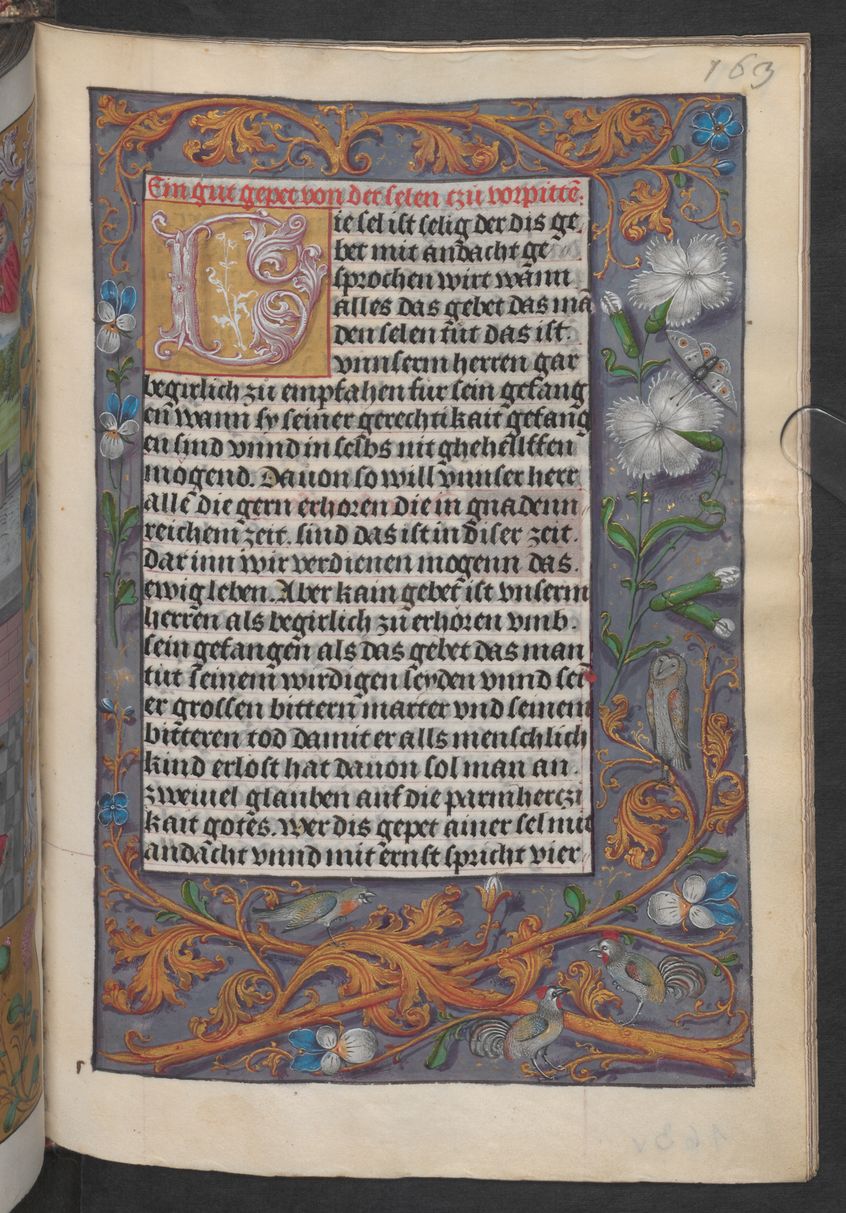 163
Ein gut gepet von der selen tzů vorpittē:
Die sel ist selig der dis ge
bet mit andacht ge
sprochen wirt wann
alles das gebet das mā
den selen tůt das ist.
vnnserm herren gar
begirlich zů empfahen fur sein gefang
eñ wann sy seiner gerechtikait gefang
en sind vnnd in selbs nit ghehellffen
mogend. Dauon so will vnnser herr
allē die gern erhoren die in gnadenn
reichem zeit. sind das ist in diser zeit.
dar inn wir verdienen mogenn das.
ewig leben. Aber kain gebet ist vnserm
herren als begirlich zů erhoren vmb.
sein gefangen als das gebet das man
tůt seinem wirdigen leyden vnnd sei
er grossen bittern marter vnd seinem
bitteren tod damit er alls menschlich
kind erlost hat dauon sol man an.
zweiuel glauben auf die parmhertzi
kait gotes. Wer dis gepet ainer sel mit
andacht vnnd mit ernst spricht vier